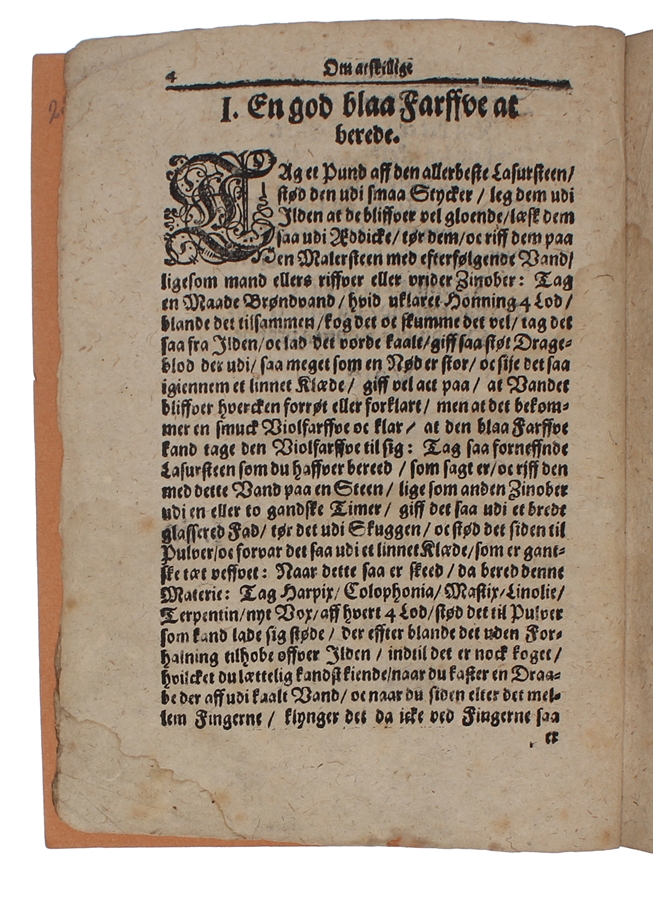 4
Om atskillige
I. En god blaa Farffve at
berede.
TAg et Pund aff den allerbeste Lasursteen/
stød den udi smaa Stycker / leg dem udi
Ilden at de bliffver vel gloende/læsk dem
saa udi Æddicke/tør dem/oc riff dem paa
en Malersteen med efterfølgende Vand/
ligesom mand ellers riffver eller vrider Zinober: Tag
en Maade Brøndvand / hvid uklaret Honning 4 Lod /
blande det tilsammen/kog det oc skumme det vel/ tag det
saa fra Ilden/oc lad det vorde kaalt/giff saa støt Drage-
blod der udi/ saa meget som en Nød er stor/ oc sije det saa
igiennem et linnet Klæde/ giff vel act paa / at Vandet
bliffver hvercken forrøt eller forklart / men at det bekom-
mer en smuck Violfarffve oc klar / at den blaa Farffve
kand tage den Violfarffve til sig: Tag saa forneffnde
Lasursteen som du haffver bereed / som sagt er/oc riff den
med dette Vand paa en Steen / lige som anden Zinober
udi en eller to gandske Timer/ giff det saa udi et brede
glassered Fad/ tør det udi Skuggen / oc stød det siden til
Pulver/oc forvar det saa udi et linnet Klæde/som er gant-
ske tæt veffvet: Naar dette saa er skeed / da bered denne
Materie: Tag Harpix/ Colophonia/ Mastix/Linolie/
Terpentin/nyt Vox/aff hvert 4 Lod/stød det til Pulver
som kand lade sig støde / der effter blande det uden For-
halning tilhobe offver Ilden / indtil det er nock koget/
hvilcket du lættelig kandst kiende/naar du kaster en Draa-
be der aff udi kaalt Vand/ oc naar du siden elter det mel-
lem Fingerne / klynger det da icke ved Fingerne saa
er